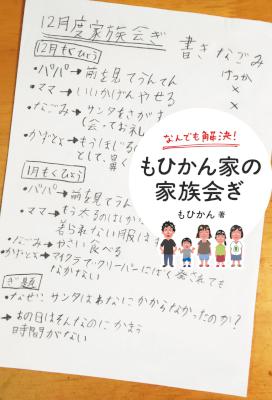 12月度家族会ぎ
書き なごみ
12月もくひょう
けっか
・パパ→前を見てうんてん
×
・ママ→いいかげんやせる
×
・なごみ→サンタをさがす
(会ってお礼
・かずと→もうほじる
として、鼻く
1月もくひょう
・パパ→前を見てうん
・ママ→もう太るのはしか
着られない服はす
・なごみ→やさい食べる
・かずと→マイクラで、クリーパーにばく発されても
なかない
ぎ題
・なぜ、サンタはあなにかからなかったのか?
→あの日はそんなのにかまう
時間がない
なんでも解決!
もひかん家の
家族会ぎ
もひかん 著